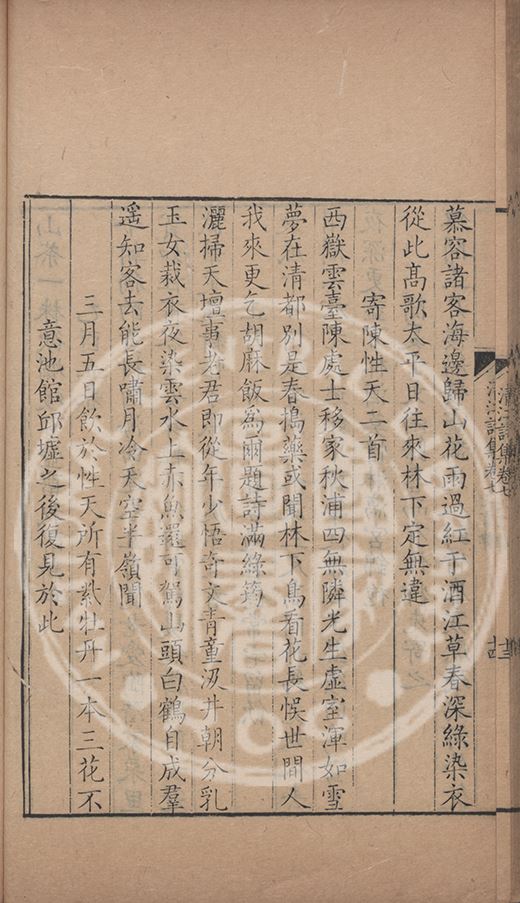 慕容諸客海邊歸山花雨過紅于酒江草春深綠染衣
從此高歌太平日往來林下定無違
寄陳性天二首
西嶽雲臺陳處士移家秋浦四無隣光生虛室渾如雪
夢在清都別是春搗藥或聞林下鳥看花長悞世間人
我來更乞胡麻飯為爾題詩滿綠筠
灑掃天壇事老君即從年少悟奇文青童汲井朝分乳
玉女裁衣夜染雲水上赤魚還可駕山頭白鶴自成羣
遥知客去能長嘯月冷天空半嶺聞
三月五日飲於性天所有紫牡丹一本三花不
意池館邱墟之後復見於此
清江詩集卷七